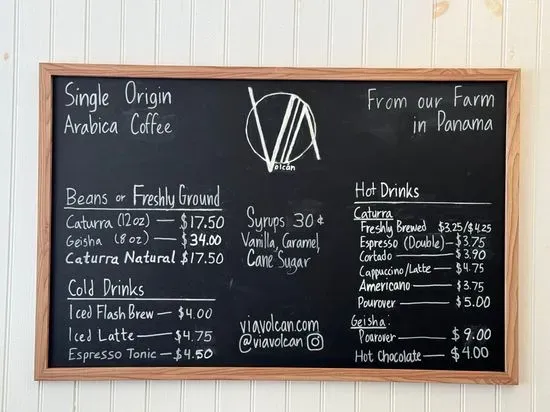 Single Origin
Arabica Coffee
VIA
Volcán
From our Farm
in Panama
Beans or Freshly Ground
Caturra (12oz) — $17.50
Geisha (8oz) — $34.00
Caturra Natural $17.50
Cold Drinks
Iced Flash Brew — $4.00
Iced Latte — $4.75
Espresso Tonic — $4.50
Syrups 30¢
Vanilla, Caramel,
Cane Sugar
viavolcan.com
@viavolcan
Hot Drinks
Caturra
Freshly Brewed $3.25/$4.25
Espresso (Double) — $3.75
Cortado — $3.90
Cappuccino/Latte — $4.75
Americano — $3.75
Pourover — $5.00
Geisha:
Pourover — $9.00
Hot Chocolate — $4.00